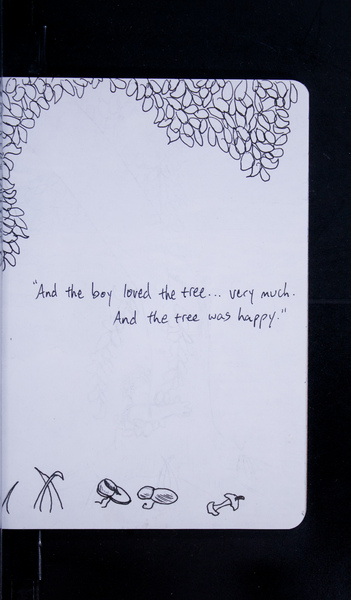 "And the boy loved the tree... very much.
And the tree was happy."